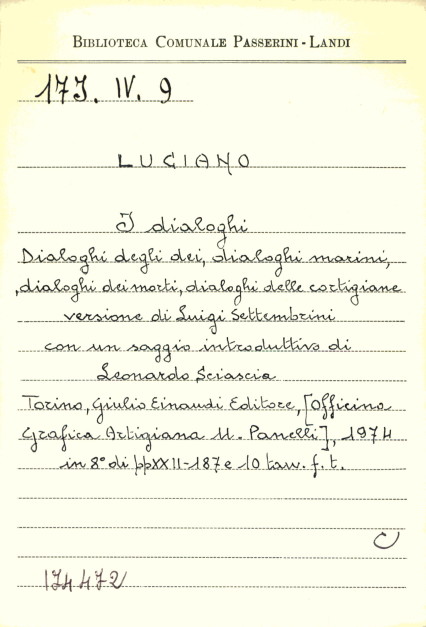 BIBLIOTECA COMUNALE PASSERINI - LANDI
17J. IV. 9
LUCIANO
I dialoghi
Dialoghi degli dei, dialoghi marini,
dialoghi dei morti, dialoghi delle cortigiane
versione di Luigi Settembrini
con un saggio introduttivo di
Leonardo Sciascia
Torino, Giulio Einaudi Editore, [Officina
Grafica Artigiana U. Panelli], 1974
in 8° di pp XXII-187 e 10 tavv. f. t.
C
174472